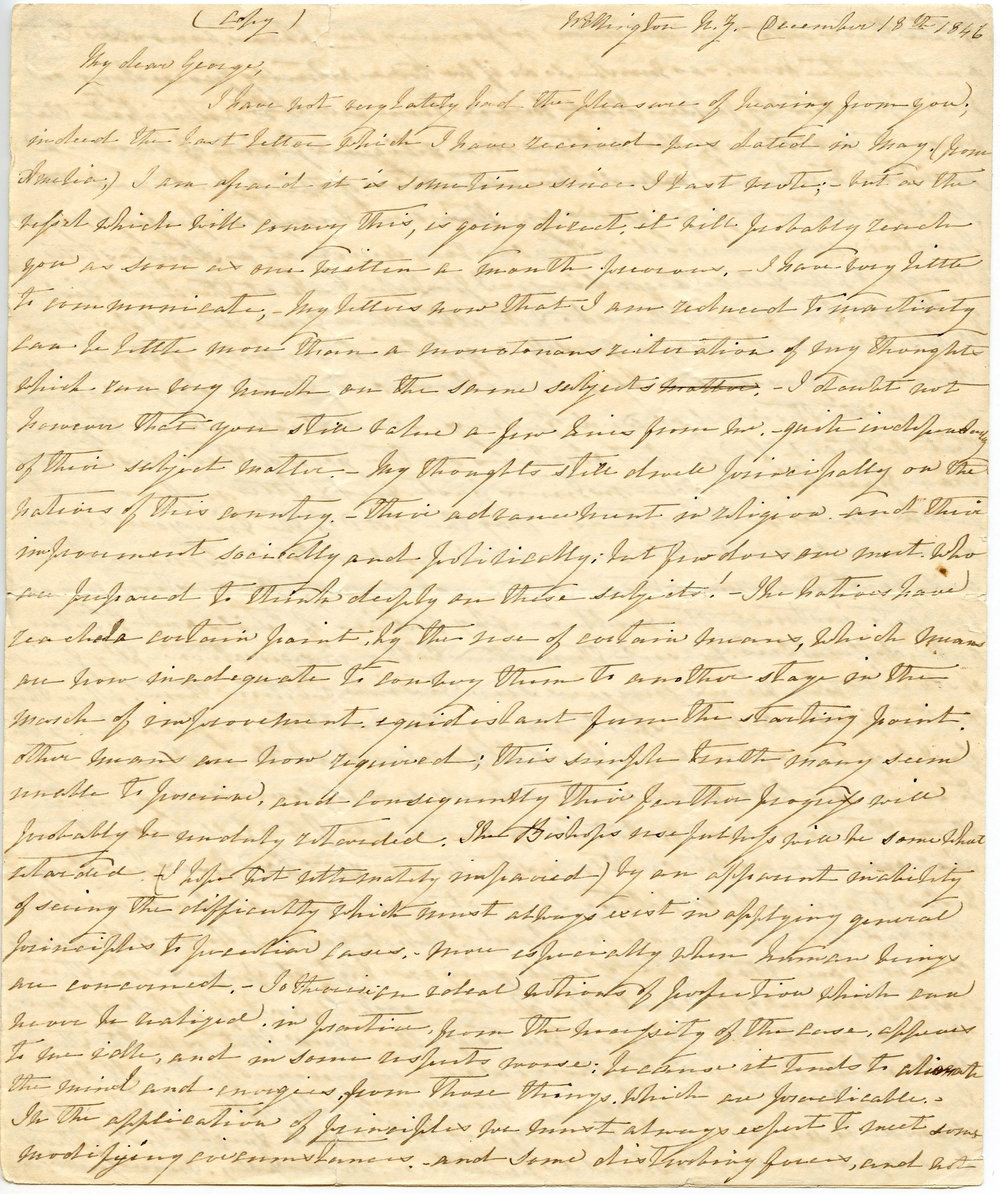 (Copy) Wellington N.Z. - December 18th 1846
My dear George,
I have not very lately had the pleasure of hearing from you;
indeed the last letter which I have received was dated in May. (from
Amelia,) I am afraid it is some time since I last wrote; - but as the
vessel which will convey this, is going direct, it will probably reach
you as soon as one written a month previous. - I have very little
to communicate, - My letters now that I am reduced to inactivity
can be little more than a monotonous reiteration of my thoughts
which run very much on the same subjects matter. - I doubt not
however that you still value a few lines from me. - quite independently
of their subject matter - My thoughts still dwell principally on the
natives of this country. - their advancement in religion - and their
improvement socially and politically; but few does one meet who
are prepared to think deeply on these subjects! - The natives have
reached a certain point, by the use of certain means, which means
are now inadequate to convey them to another stage in the
march of improvement, equidistant from the starting point.
other means are now required; this simple truth many seem
unable to perceive, and consequently their further progress will
probably be unduly retarded. The Bishops usefulness will be somewhat
retarded - (I hope not ultimately impaired) by an apparent inability
of seeing the difficulty which must always exist in applying general
principles to peculiar cases. - more especially when human beings
are concerned. - To theorise on ideal notions of perfection which can
never be realized, in practice, from the necessity of the case, appears
to me idle, and in some respects worse; because it tends to alienate
the mind and energies, from those things, which are practicable. -
In the application of principles we must always expect to meet some
modifying circumstances. - and some disturbing forces, and not